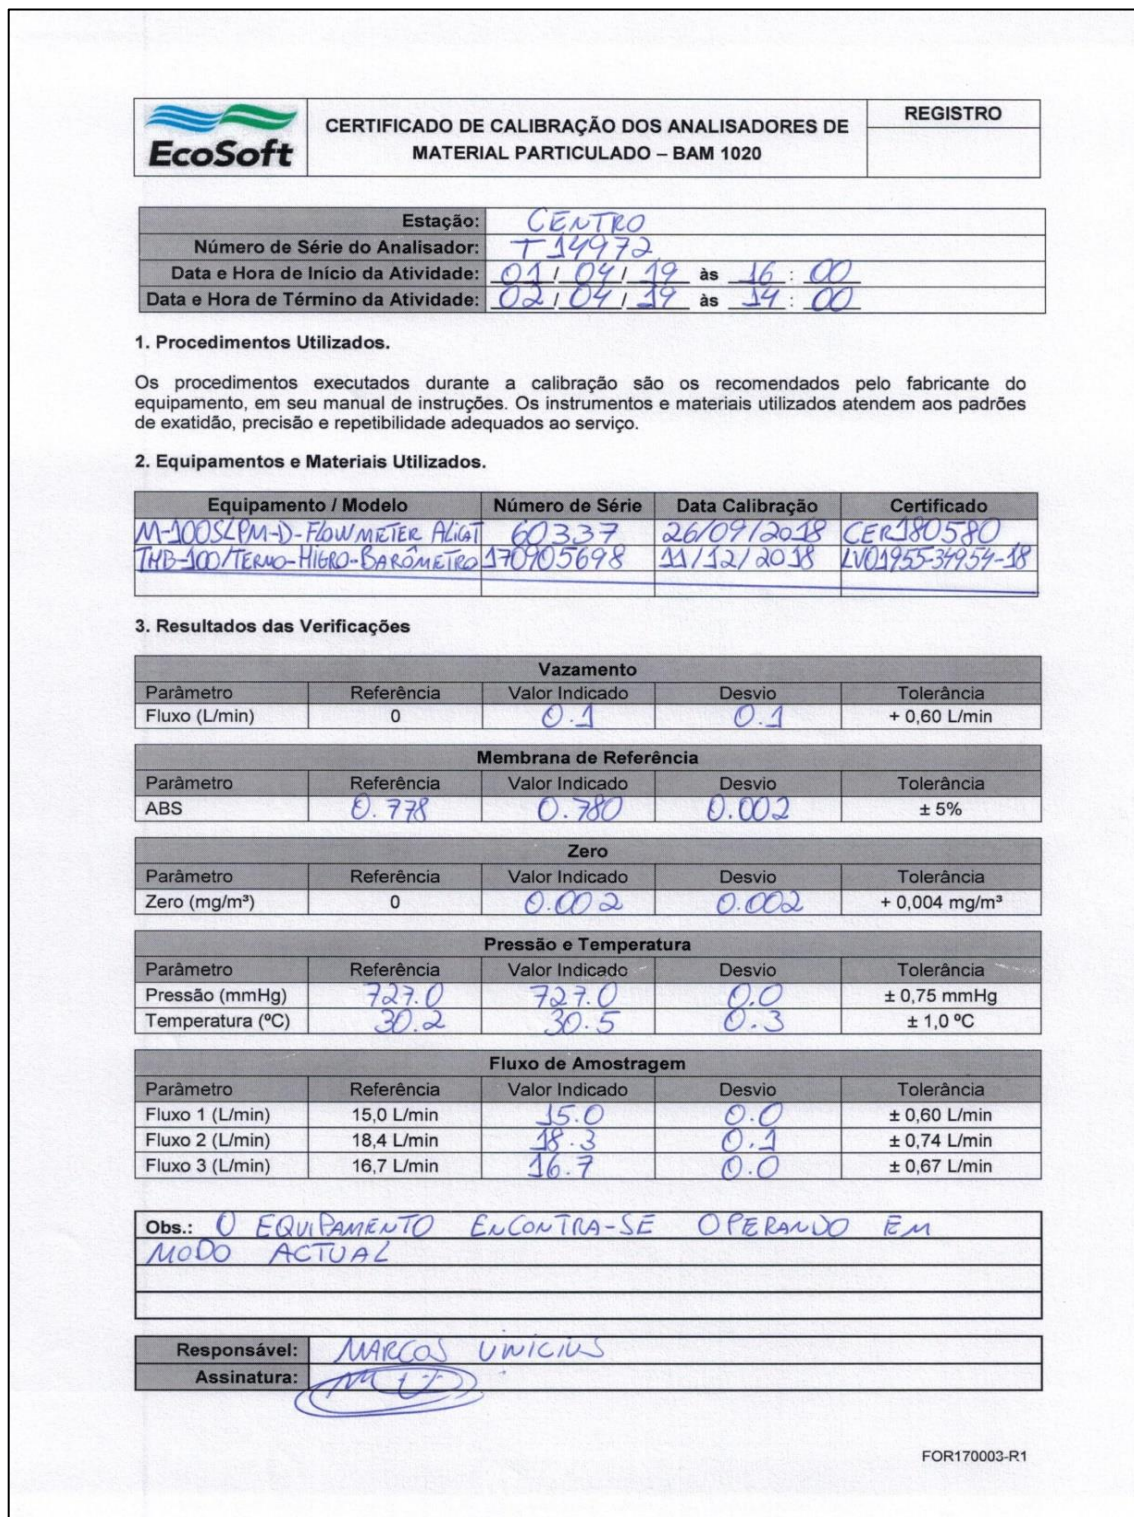 EcoSoft
CERTIFICADO DE CALIBRAÇÃO DOS ANALISADORES DE
MATERIAL PARTICULADO – BAM 1020
REGISTRO
Estação: CENTRO
Número de Série do Analisador: T14972
Data e Hora de Início da Atividade: 01/04/19 às 16:00
Data e Hora de Término da Atividade: 02/04/19 às 14:00
1. Procedimentos Utilizados.
Os procedimentos executados durante a calibração são os recomendados pelo fabricante do
equipamento, em seu manual de instruções. Os instrumentos e materiais utilizados atendem aos padrões
de exatidão, precisão e repetibilidade adequados ao serviço.
2. Equipamentos e Materiais Utilizados.
Equipamento / Modelo Número de Série Data Calibração Certificado
M-100SLPM-D-FLOWMETER ALICAT 60337 26/09/2018 CER180580
THB-100/TERMO-HIGRO-BARÔMETRO 170905698 11/12/2018 LV01955-34954-18
3. Resultados das Verificações
Vazamento
Parâmetro Referência Valor Indicado Desvio Tolerância
Fluxo (L/min) 0 0.1 0.1 + 0,60 L/min
Membrana de Referência
Parâmetro Referência Valor Indicado Desvio Tolerância
ABS 0.778 0.780 0.002 ± 5%
Zero
Parâmetro Referência Valor Indicado Desvio Tolerância
Zero (mg/m³) 0 0.002 0.002 + 0,004 mg/m³
Pressão e Temperatura
Parâmetro Referência Valor Indicado Desvio Tolerância
Pressão (mmHg) 727.0 727.0 0.0 ± 0,75 mmHg
Temperatura (ºC) 30.2 30.5 0.3 ± 1,0 ºC
Fluxo de Amostragem
Parâmetro Referência Valor Indicado Desvio Tolerância
Fluxo 1 (L/min) 15,0 L/min 15.0 0.0 ± 0,60 L/min
Fluxo 2 (L/min) 18,4 L/min 18.3 0.1 ± 0,74 L/min
Fluxo 3 (L/min) 16,7 L/min 16.7 0.0 ± 0,67 L/min
Obs.: O EQUIPAMENTO ENCONTRA-SE OPERANDO EM
MODO ACTUAL
Responsável: MARCOS VINICIUS
Assinatura:
FOR170003-R1